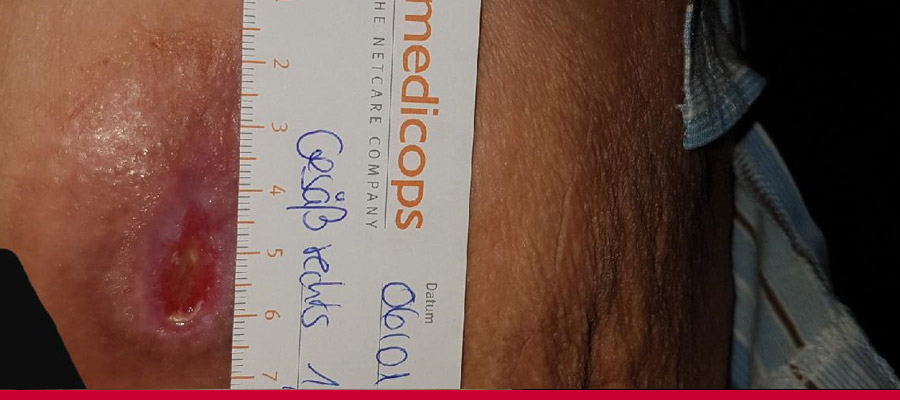 medicops
HE NETCARE COMPANY
Datum
06/01
Gesäß rechts 1
2
3
4
5
6
7